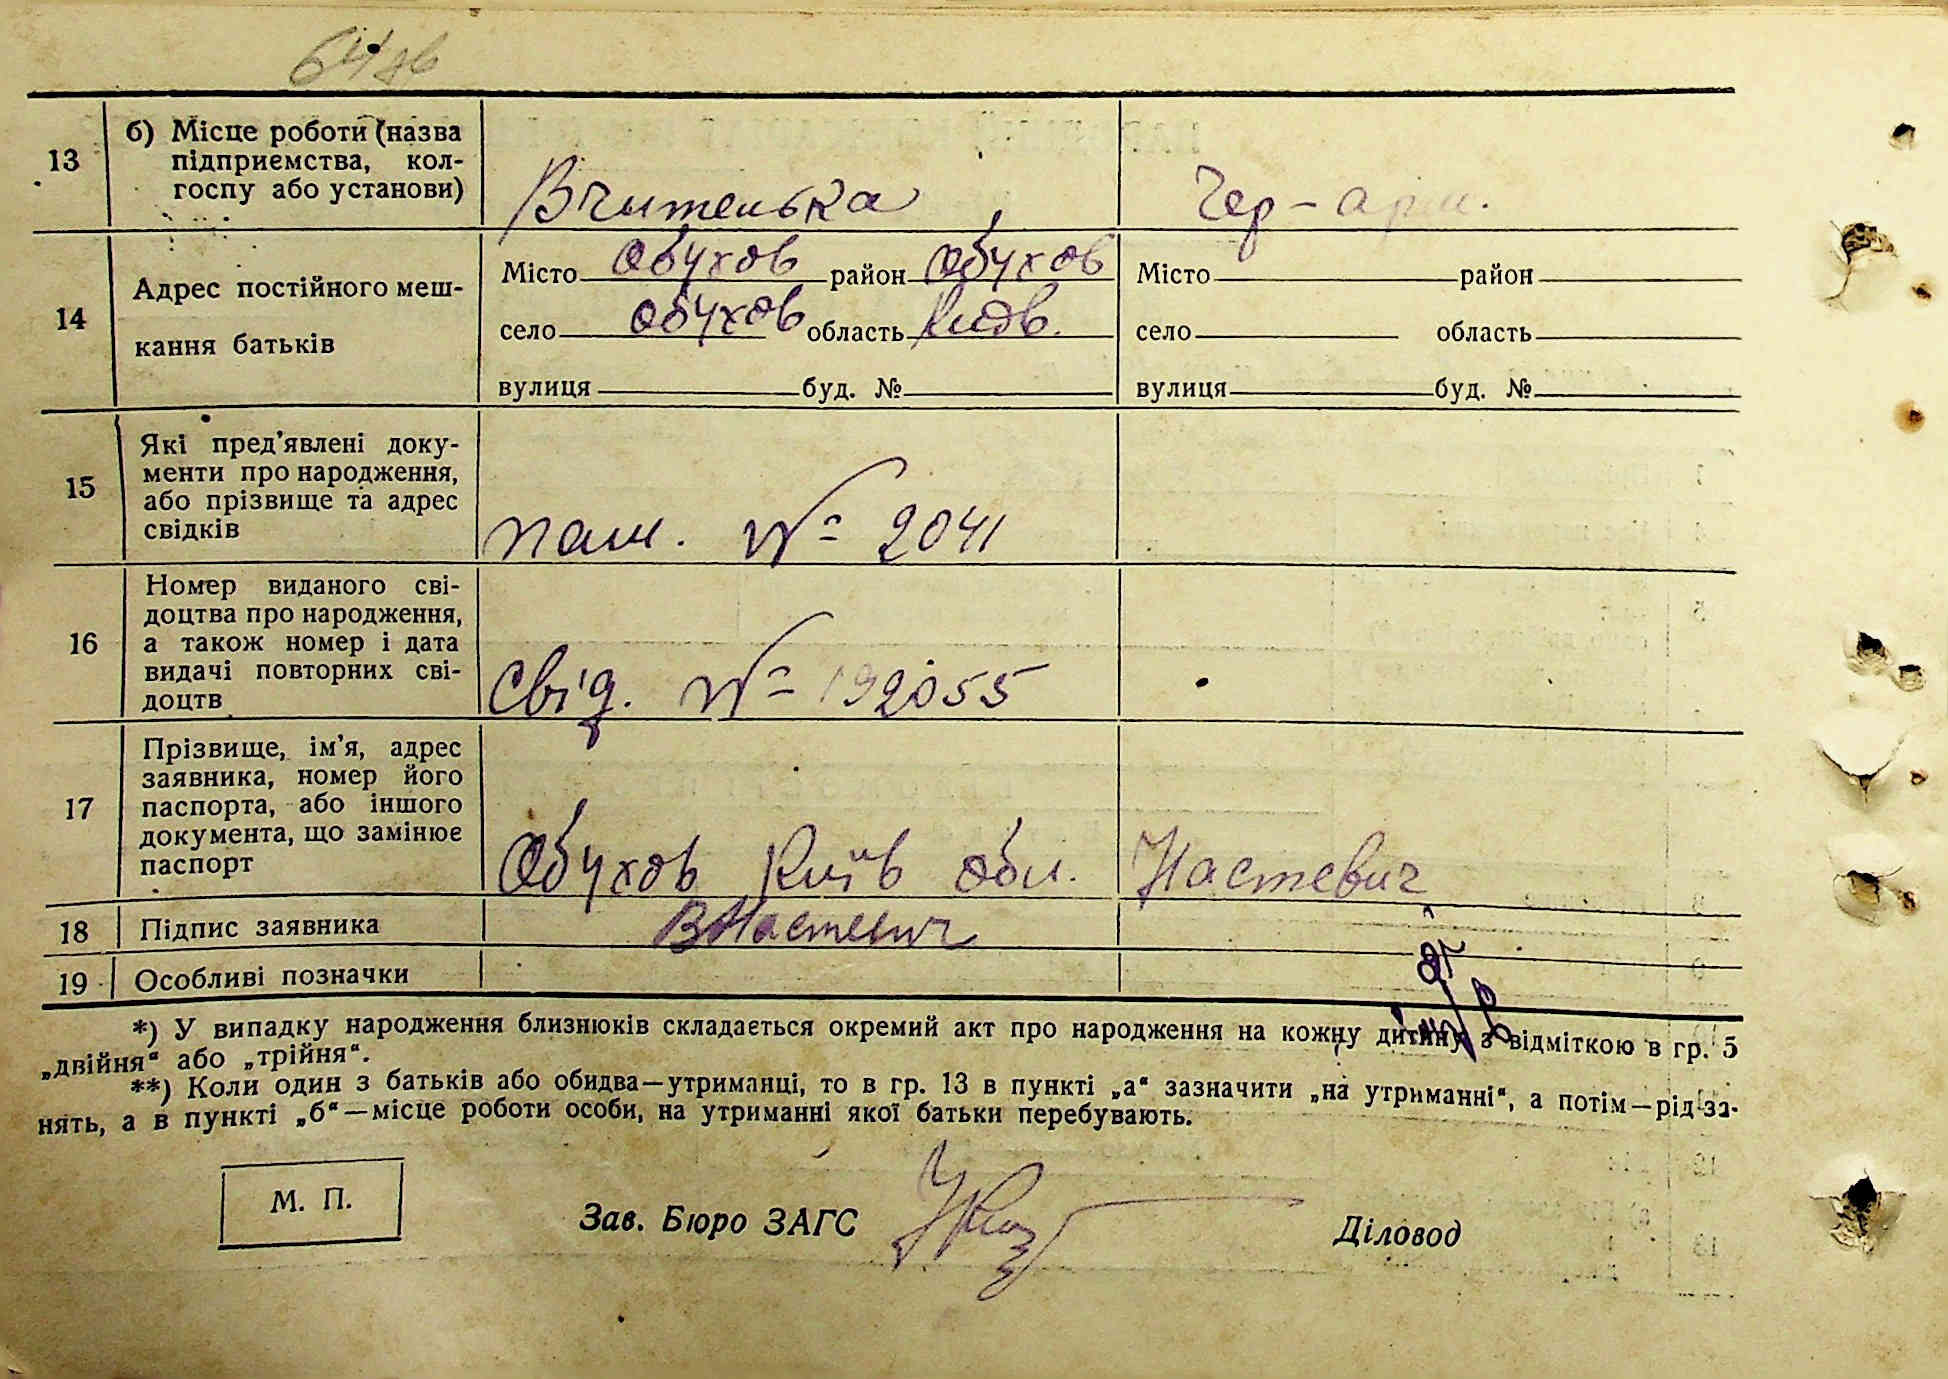 13
б) Місце роботи (назва
підприємства, кол-
госпу або установи)
Вчителька
Чер-арм.
14
Адрес постійного меш-
кання батьків
Місто Обухов район Обухов
село Обухов область Київ.
вулиця буд. №
Місто район
село область
вулиця буд. №
15
Які пред'явлені доку-
менти про народження,
або прізвище та адрес
свідків
пам. № 2041
16
Номер виданого сві-
доцтва про народження,
а також номер і дата
видачі повторних сві-
доцтв
Свід. № 192055
17
Прізвище, ім'я, адрес
заявника, номер його
паспорта, або іншого
документа, що замінює
паспорт
Обухов Київ обл. Настевич
18
Підпис заявника
ВНастевич
19
Особливі позначки
*) У випадку народження близнюків складається окремий акт про народження на кожну дитину з відміткою в гр. 5
„двійня“ або „трійня“.
**) Коли один з батьків або обидва—утриманці, то в гр. 13 в пункті „а“ зазначити „на утриманні“, а потім—рід за-
нять, а в пункті „б“—місце роботи особи, на утриманні якої батьки перебувають.
М. П.
Зав. Бюро ЗАГС
Діловод